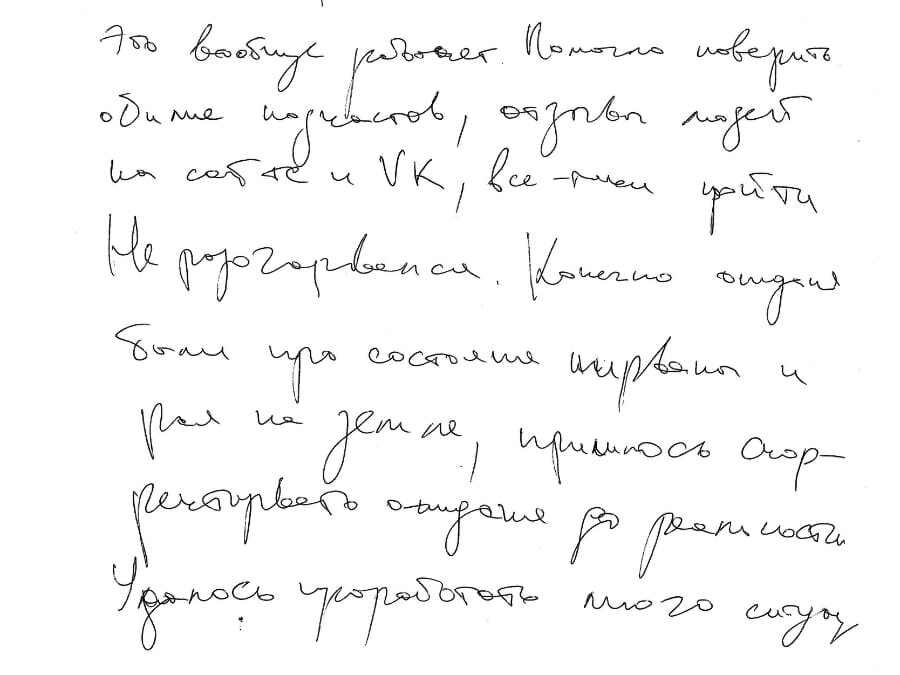 Это вообще работает. Помогло поверить
обилие подкастов, отзывы людей
на сайте и VK, все-таки прийти
Не разочаровался. Конечно ожидания
были про состояние нирваны и
рая на земле, пришлось скор-
ректировать ожидание до реальности
Удалось проработать много ситуац